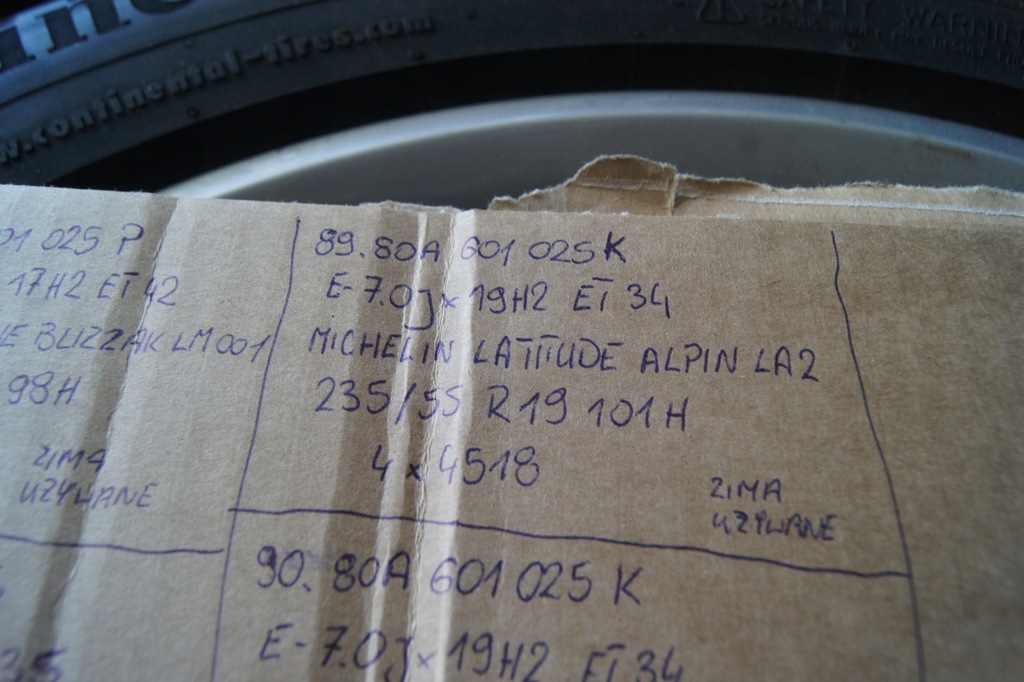 www.continental-tires.com
SAFETY WARNING
01 025 P
17H2 ET 42
NE BLIZZAK LM001
98H
ZIMA
UŻYWANE
89. 80A 601 025 K
E- 7.0J x 19H2 ET 34
MICHELIN LATTITUDE ALPIN LA2
235/55 R19 101H
4 x 4518
ZIMA
UŻYWANE
90. 80A 601 025 K
E- 7.0J x 19H2 ET 34